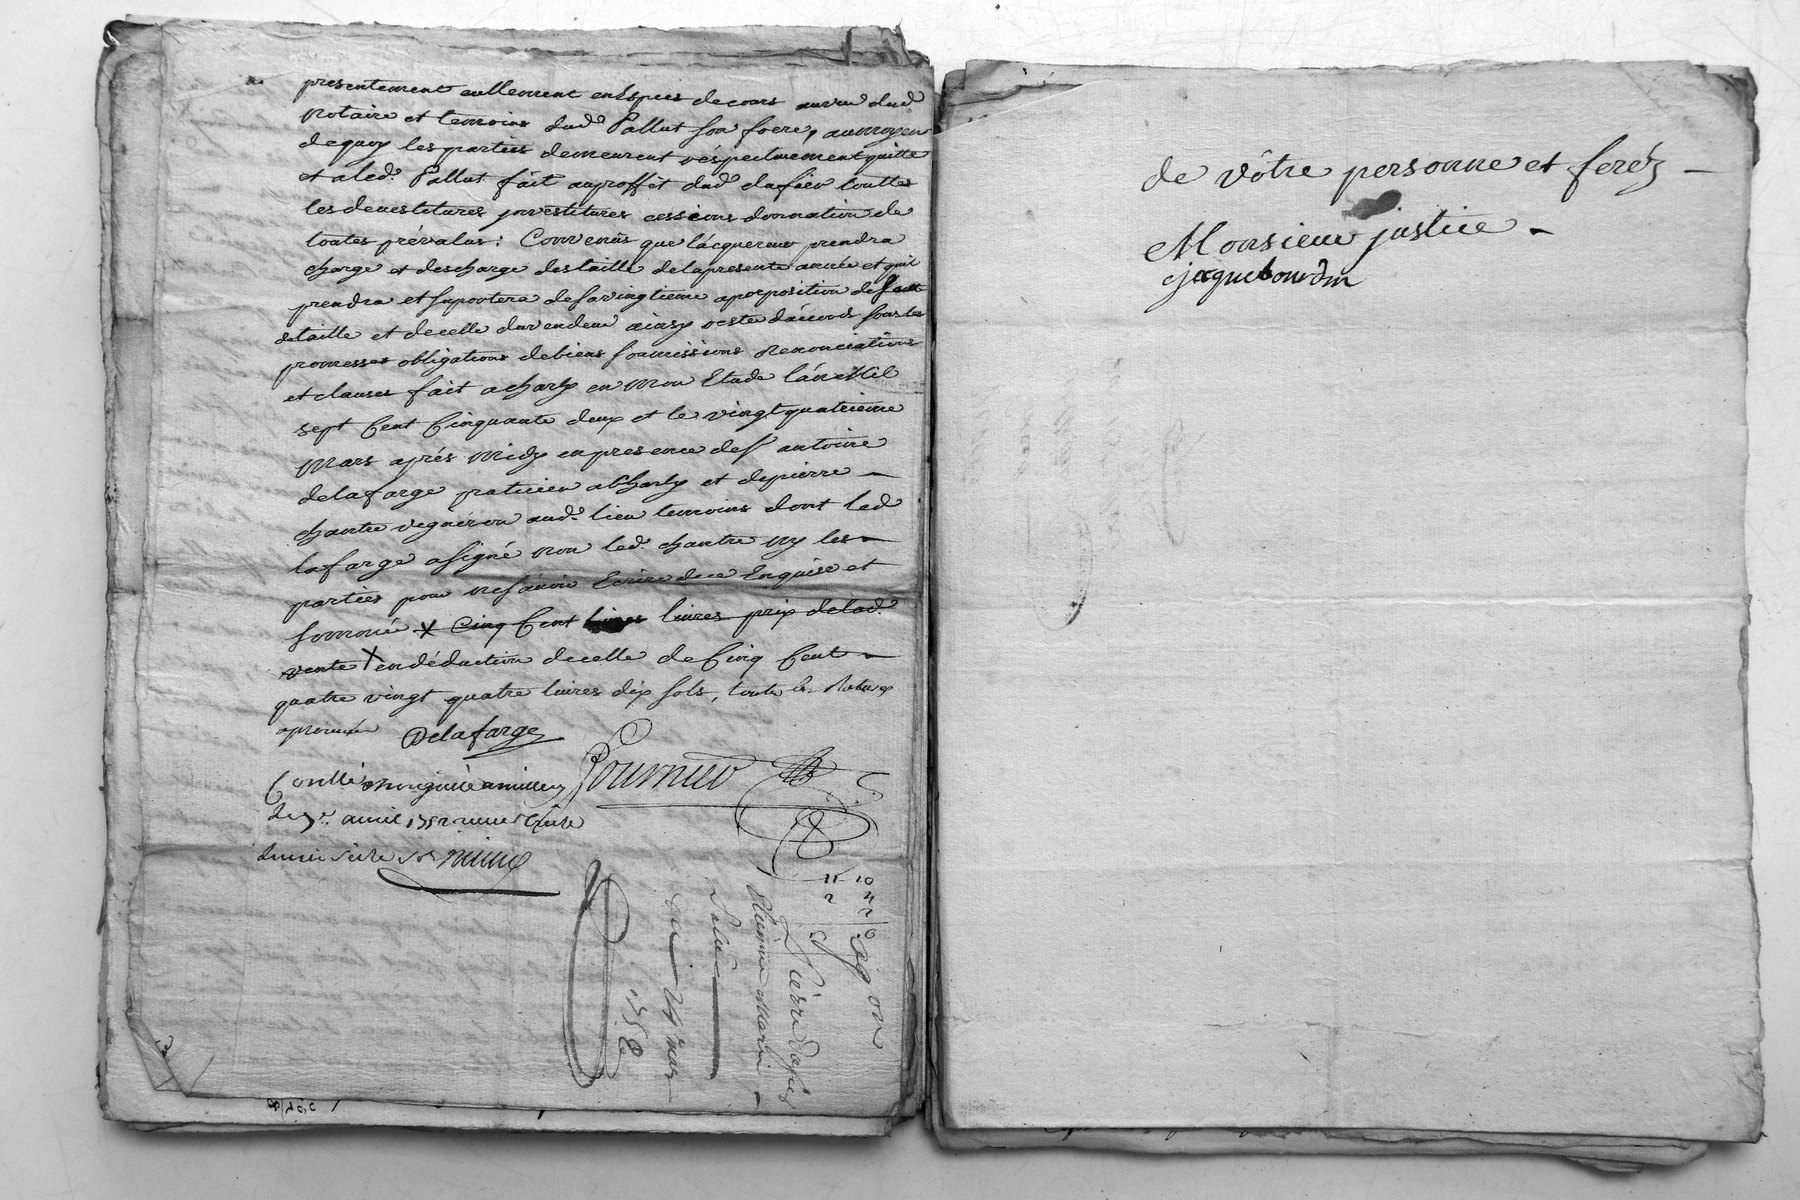 presentement reellement en Espces de cours au vu dud
Notaire et temoins dud. Pallut son frere, au moyen
de quoy les parties demeurent réspectivement quitte
et a led. Pallut fait au proffit dud dafieu touttes
les devestitures jnvestitures cessions donnation de
toutes prévalus: Convenûs que l'acquereur prendra
charge et descharge des taille de la presente année et quil
prendra et suportera de sa vingtieme a proposition de sa
de taille et de celle du vendeur ainsy resté d'accord sous les
promesses obligations de biens soumissions renonciations
et clauses fait a charly en mon Etude l'an Mil
sept Cent Cinquante deux et le vingt quatrieme
Mars aprés Midy en presence de s.r antoine
delafarge praticien a Charly et de pierre
chantre vigneron aud. lieu temoins dont led
lafarge a signé non led. chantre ny les
parties pour ne sçavoir Ecrire de ce Enquise et
sommé X Cinq Cent livres livres prix de lad.
vente X en déduction de celle de Cinq Cent
quatre vingt quatre livres dix sols,
Delafarge
Fournier
de avril 1752
11 10
2 4
2
0
Etienne Marin
du 24e mars
1752
de vôtre personne et feréz
Monsieur justice
jaque bourdin